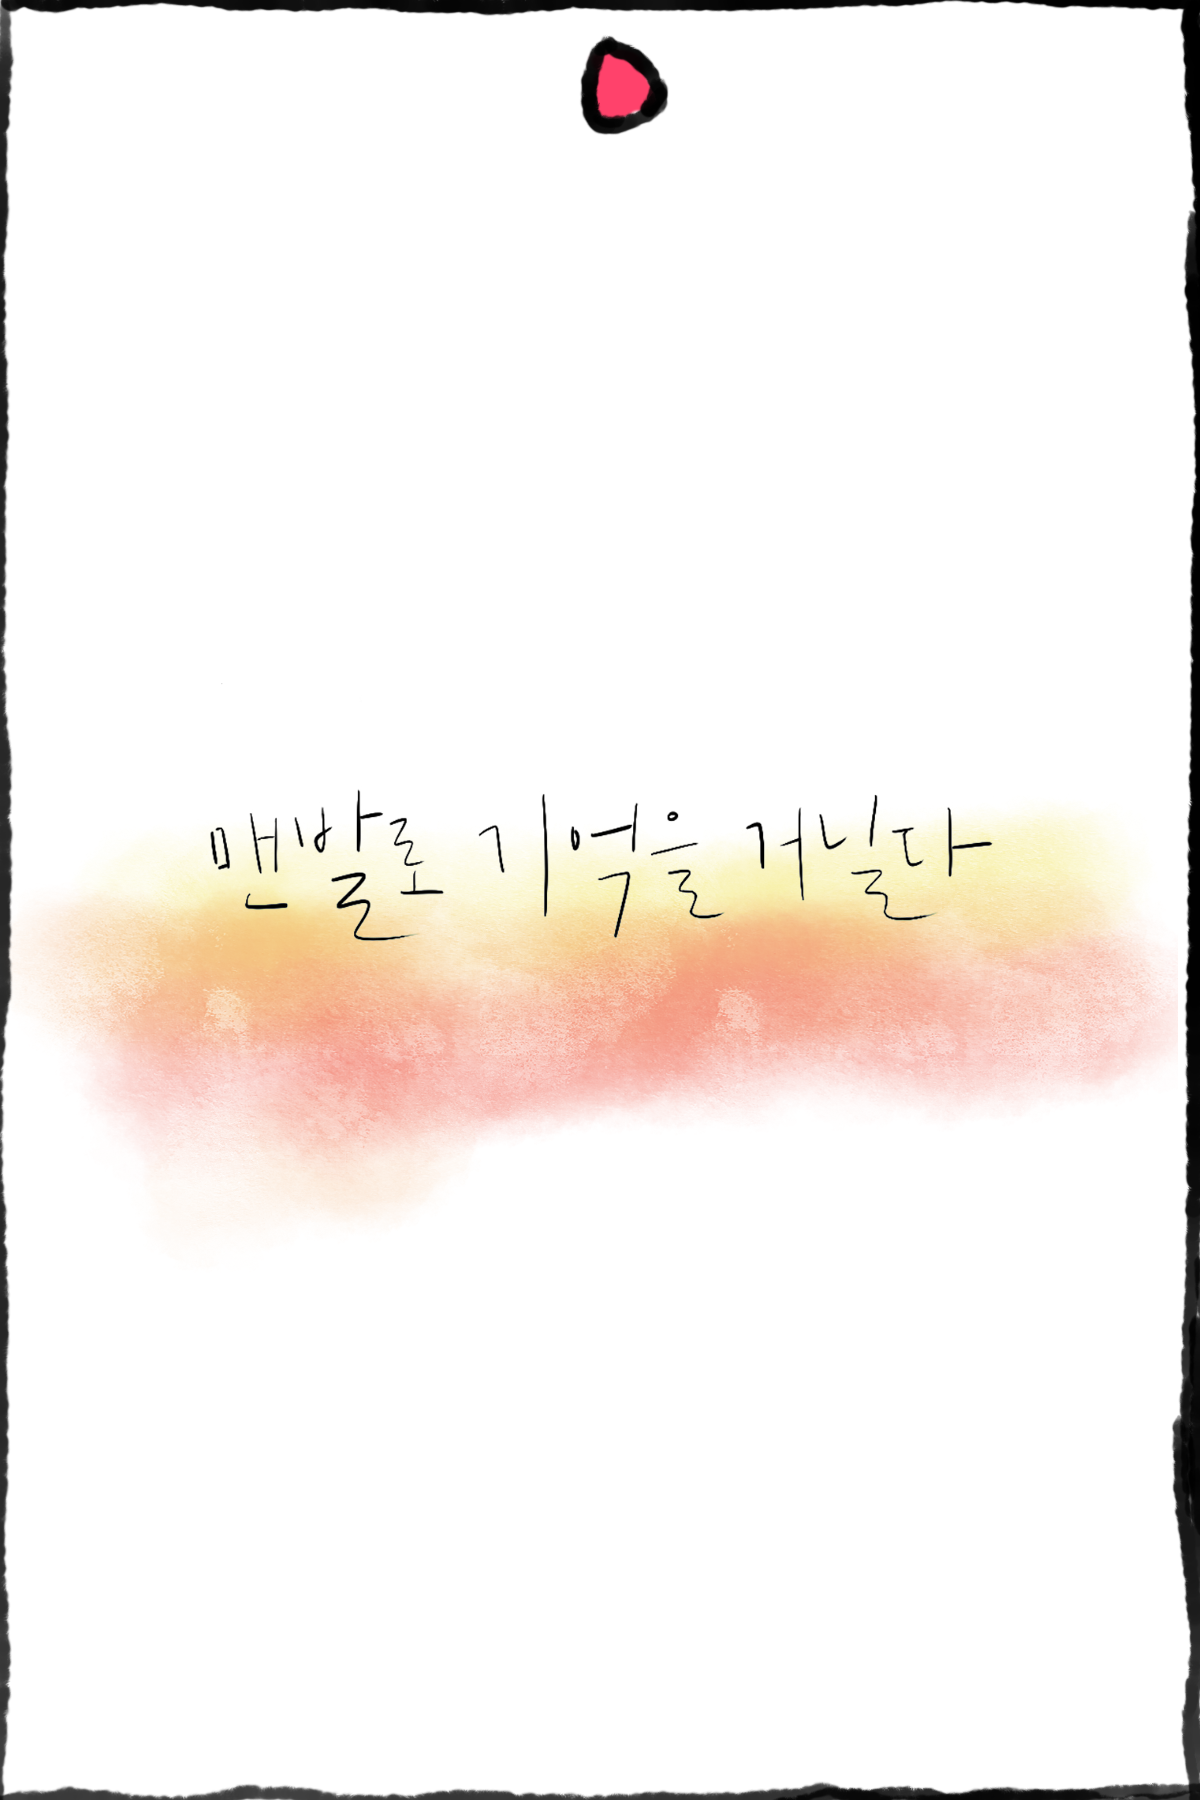 맨발로 기억을 거닐다